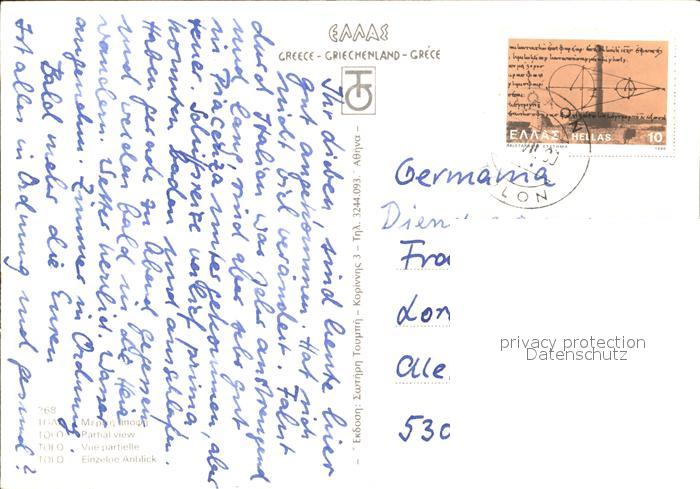 ΕΛΛΑΣ
GREECE - GRIECHENLAND - GRÈCE
Ihr Lieben, sind heute hier
gut angekommen. Hat sich
nicht viel verändert. Fahrt
durch Italien war sehr anstrengend
und lang, sind aber sehr gut
in Piacenza untergekommen, aber
teuer. Schiffsreise verlief prima,
konnten baden und ausschlafen.
Haben gerade zu Abend gegessen
und werden bald in die Heia
wandern. Wetter herrlich. Wasser
angenehm. Zimmer in Ordnung.
Bald mehr die Euren
Ist alles in Ordnung und gesund?
268
ΤΟΛΟ - Μερική άποψη
TOLO - Partial view
TOLO - Vue partielle
TOLO - Einzelne Anblick
Ἔκδοση: Σωτήρη Τουμπή - Κορίννης 3 - Τηλ. 3244.093 - Ἀθήνα -
ΕΛΛΑΣ HELLAS 10
LON
Germania
Dien
Fra
Lon
Alle
530
privacy protection
Datenschutz